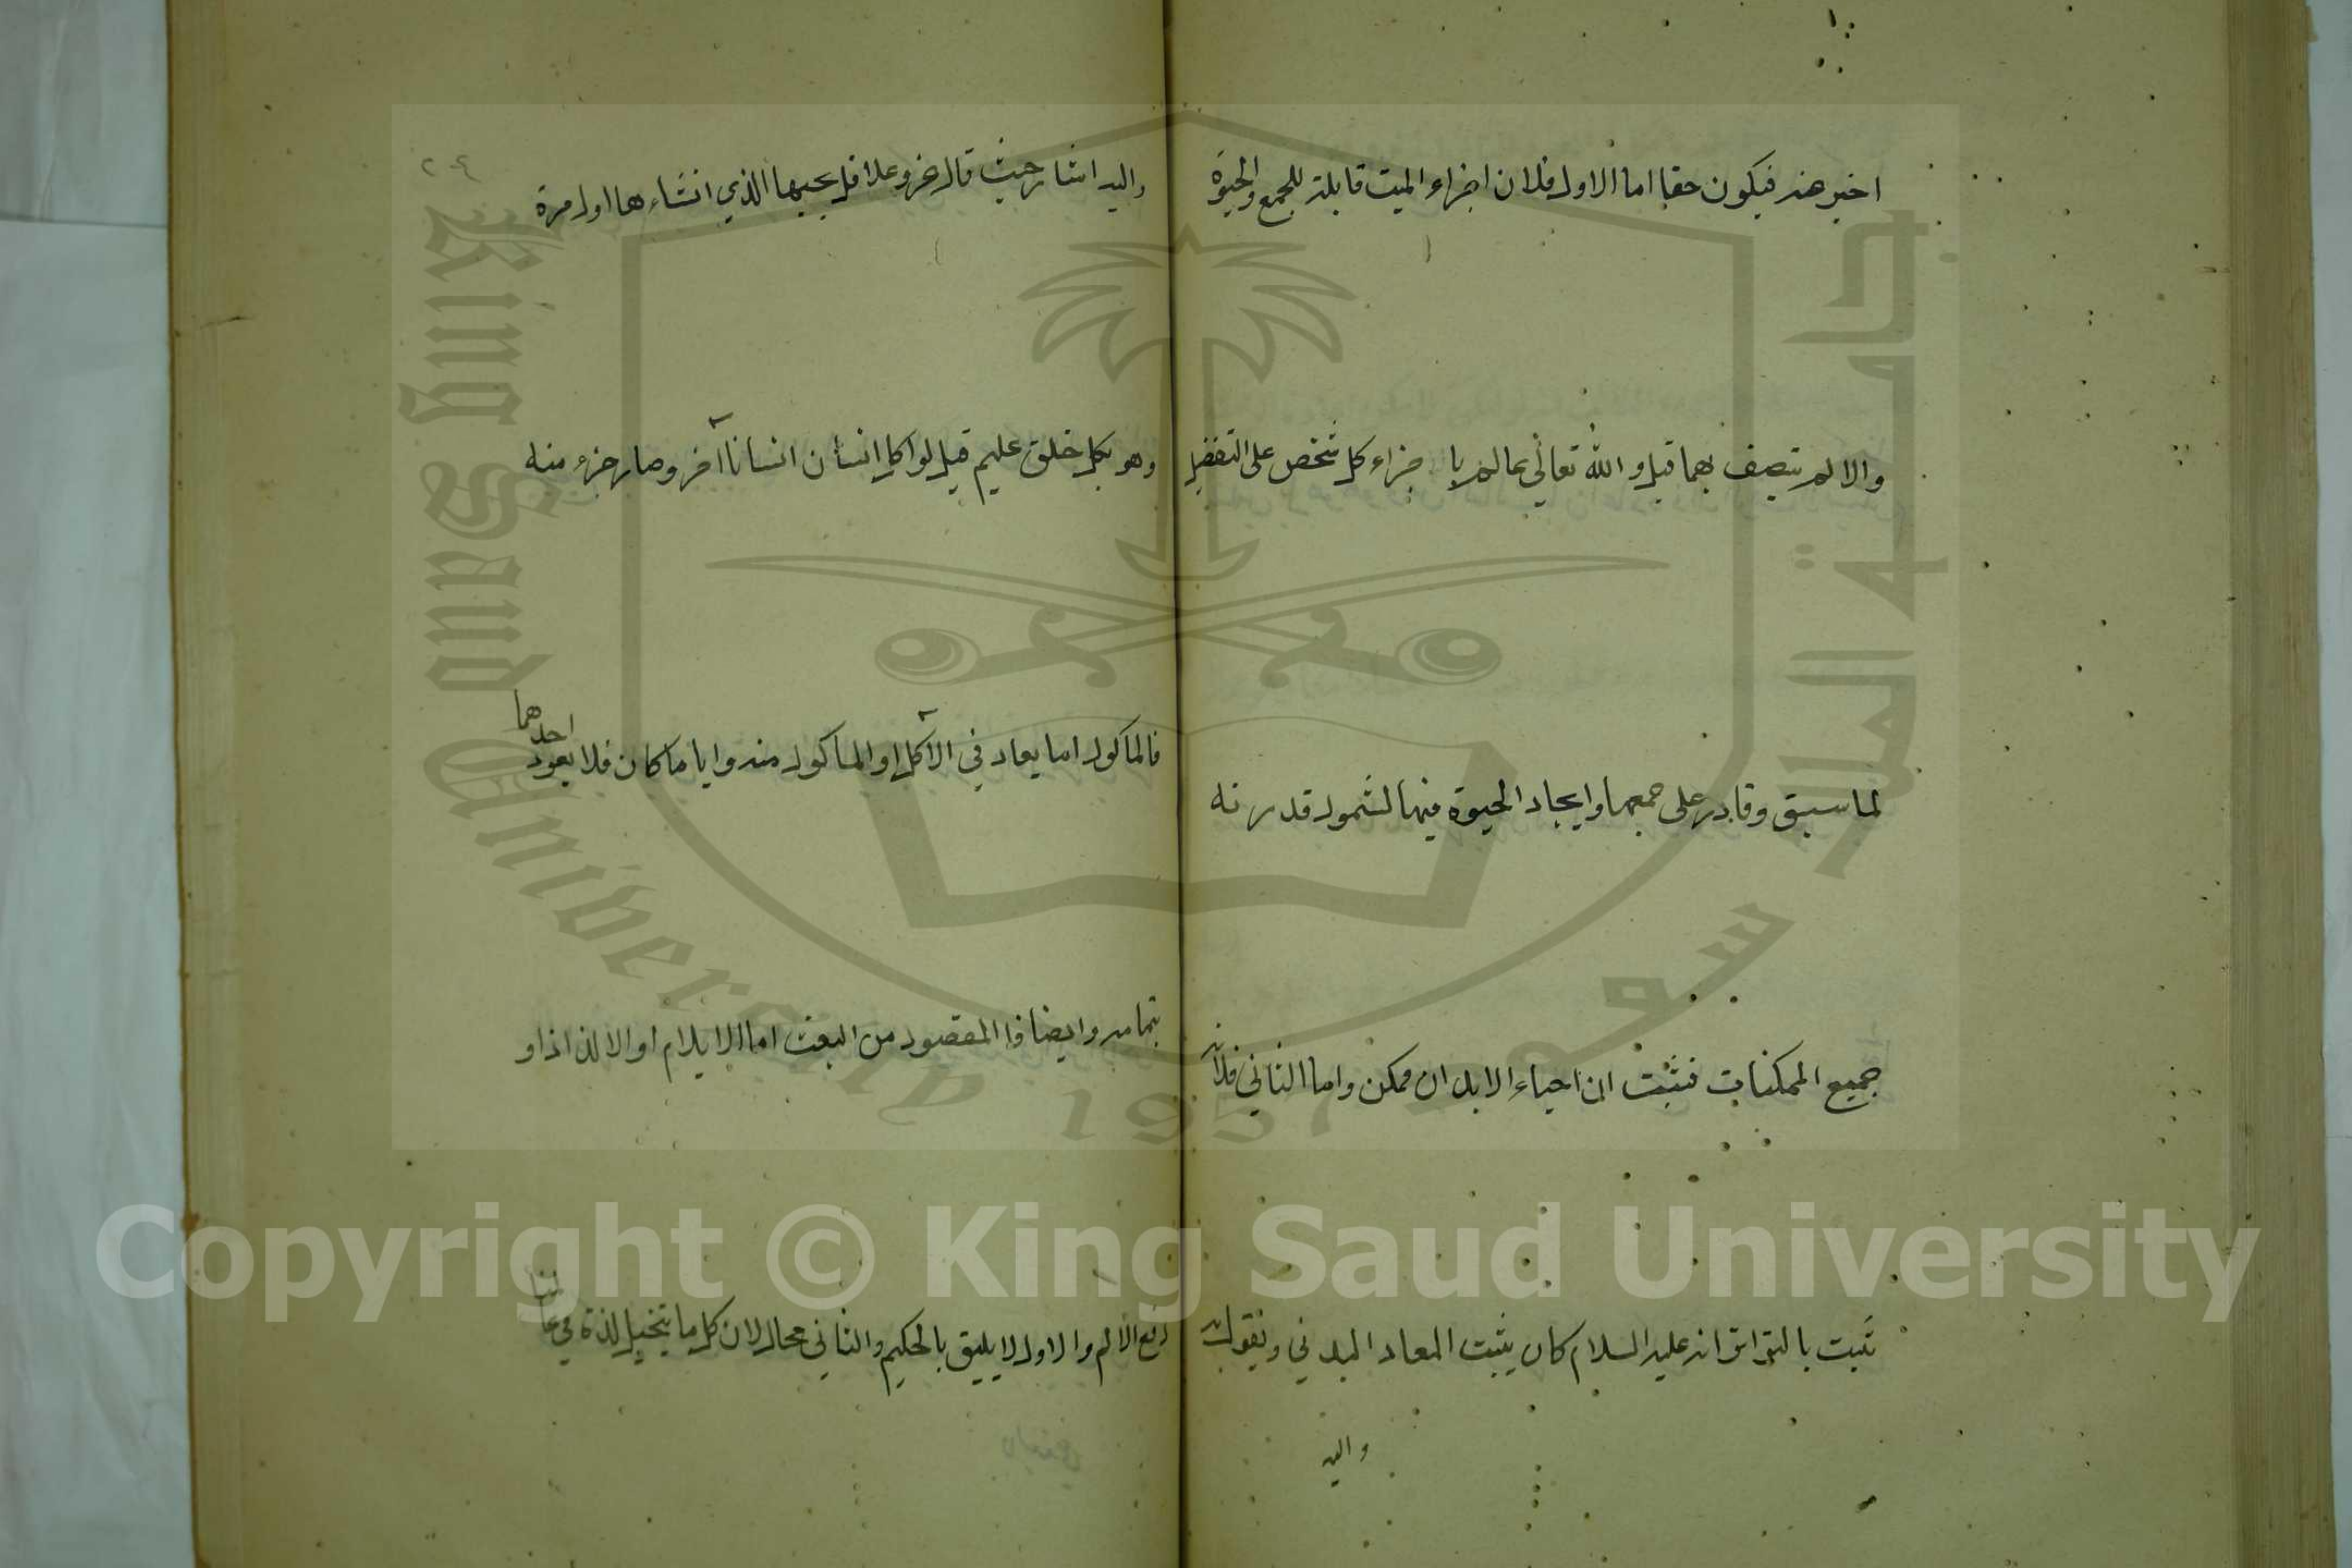 اخبر عنه فيكون حقا اما الاول فلان اجزاء الميت قابلة للجمع والحيوة
والا لم يتصف بهما قبل والله تعالى عالم باجزاء كل شخص على التفضيل
لما سبق وقادر على جمعها وايجاد الحيوة فيها لشمول قدرته
جميع الممكنات فثبت ان احياء الابدان ممكن واما الثاني فلانه
ثبت بالتواتر انه عليه السلام كان يثبت المعاد البدني ويقول به
واليه
٢٠٤
واليه اشار حيث قال عز وعلا قل يحييها الذي انشاءها اول مرة
وهو بكل خلق عليم قيل لو اكل انسان انسانا آخر وصار جزء منه
فالماكول اما يعاد في الآكل او الماكول منه وايا ما كان فلا يعود احدهما
بتمامه وايضا فالمقصود من البعث اما الايلام او الالذاذ او
دفع الالم والاول لا يليق بالحكيم والثاني محال لان كل ما يتخيل لذة في عالمنا
King Saud University
1957
جامعة الملك سعود
Copyright © King Saud University